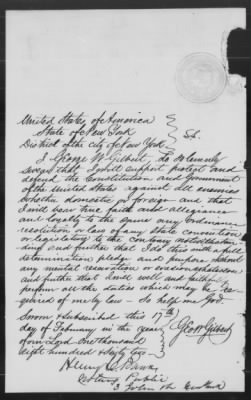 United States of America
State of New York
District of the city of New York } SS.
I George W Gilbert do solemnly
swear that I will support protect and
defend the Constitution and Government
of the United States against all enemies
whether domestic or foreign and that
I will bear true faith and allegiance
and loyalty to the same any Ordinance
resolution or law of any state convention
or legislature to the contrary notwithstan-
ding and further that I do this with a full
determination pledge and purpose without
any mental reservation or evasion whatsoever
and further that I will well and faithfully
perform all the duties which may be re-
quired of me by law - So help me God.
Sworn & subscribed this 17th
day of February in the year
of our Lord one thousand
eight hundred & sixty two
Geo W Gilbert
Henry C. Banks
Notary Public
3 John St New York